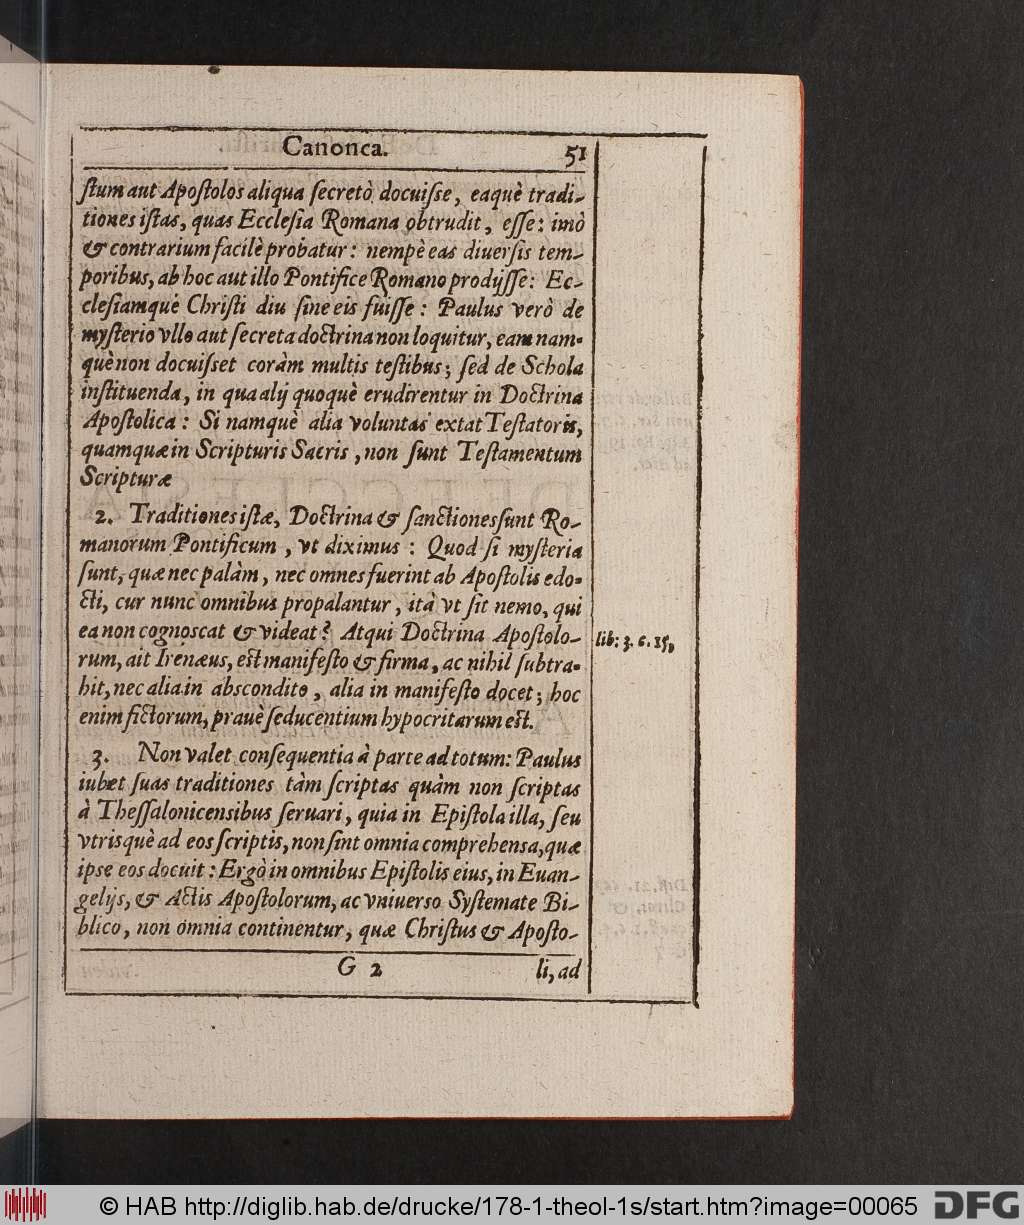 Canonca. 51
ſtum aut Apoſtolos aliqua ſecretò docuiſſe, eaquè tradi-
tiones iſtas, quas Eccleſia Romana obtrudit, eſſe: imò
& contrarium facilè probatur: nempè eas diuerſis tem-
poribus, ab hoc aut illo Pontifice Romano prodijſſe: Ec-
cleſiamquè Chriſti diu ſine eis fuiſſe: Paulus verò de
myſterio vllo aut ſecreta doctrina non loquitur, eam nam-
què non docuiſſet coràm multis teſtibus; ſed de Schola
inſtituenda, in qua alij quoquè erudirentur in Doctrina
Apoſtolica: Si namquè alia voluntas extat Teſtatoris,
quamquæ in Scripturis Sacris, non ſunt Teſtamentum
Scripturæ
2. Traditiones iſtæ, Doctrina & ſanctiones ſunt Ro-
manorum Pontificum, vt diximus: Quod ſi myſteria
ſunt, quæ nec palàm, nec omnes fuerint ab Apoſtolis edo-
cti, cur nunc omnibus propalantur, ità vt ſit nemo, qui
ea non cognoscat & videat? Atqui Doctrina Apoſtolo-
lib: 3. c. 15,
rum, ait Irenæus, eſt manifeſto & firma, ac nihil ſubtra-
hit, nec alia in abscondito, alia in manifeſto docet; hoc
enim fictorum, prauè ſeducentium hypocritarum eſt.
3. Non valet conſequentia à parte ad totum: Paulus
iubet ſuas traditiones tàm ſcriptas quàm non ſcriptas
à Theſſalonicensibus ſeruari, quia in Epiſtola illa, ſeu
vtrisquè ad eos ſcriptis, non ſint omnia comprehensa, quæ
ipse eos docuit: Ergò in omnibus Epiſtolis eius, in Euan-
gelijs, & Actis Apoſtolorum, ac vniuerso Syſtemate Bi-
blico, non omnia continentur, quæ Chriſtus & Apoſto-
G 2 li, ad
© HAB http://diglib.hab.de/drucke/178-1-theol-1s/start.htm?image=00065 DFG